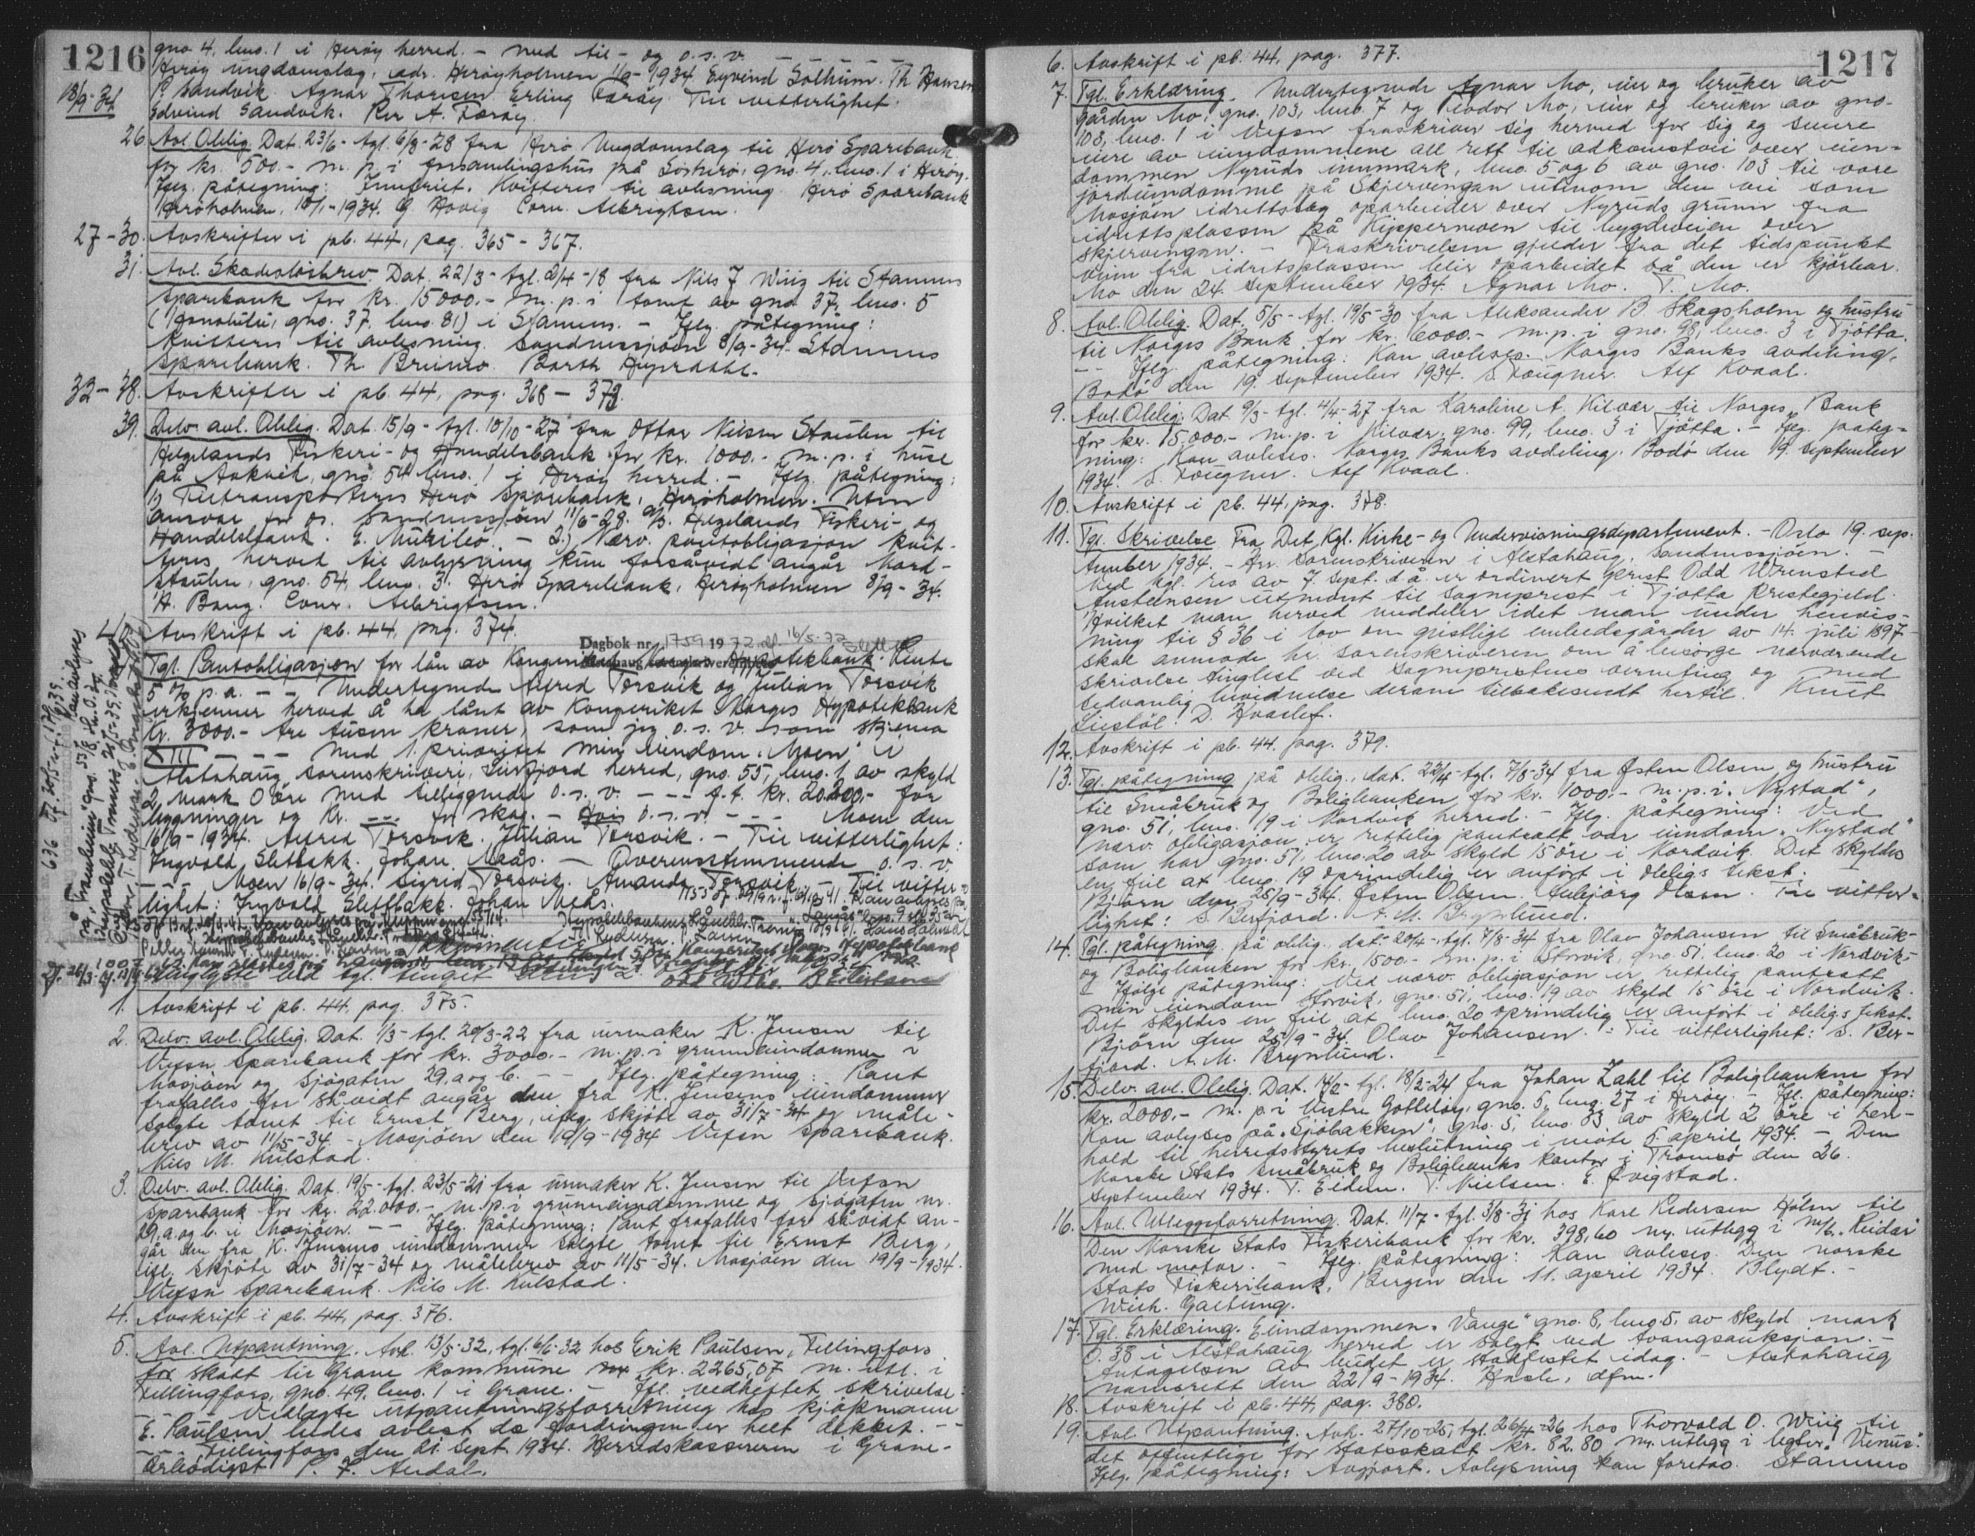 1216
gno. 4, bno. 1 i Herøy herred. - med til - og o.s.v.
Herøy ungdomslag, adr. Herøyholmen 11/9-1934. Eyvind Solhum. Th Hansen
18/9-34.
P. Sandvik. Agnar Thoresen. Erling Færøy. Til vitterlighet:
Edvind Sandvik. Per A. Færøy.
26. Avl. Oblig. Dat. 23/6- tgl. 6/8-28 fra Herø Ungdomslag til Herø Sparebank
for kr. 500.- m. p. i forsamlingshus på Sørherø, gno. 4, bno. 1 i Herøy.
Iflg. påtegning: Innfriet. Kvitteres til avlesning. Herø Sparebank
Herøholmen, 10/1-1934. Hovig Corn. Albrigtsen.
27-30. Avskrifter i pb. 44, pag. 365-367.
31. Avl. Skadesløsbrev. Dat. 22/3- tgl. 2/4-18 fra Nils J Wiig til Stamnes
Sparebank for kr. 15000.- m. p. i tomt av gno. 37, bno. 5
(Honolulu, gno. 37, bno. 81) i Stamnes. - Iflg. påtegning:
Kvitteres til avlesning. Sandnessjøen 8/9-34. Stamnes
Sparebank. Th. Bruno. Barth Heyerdahl.
32-38. Avskrifter i pb. 44, pag. 368-373.
39. Delv. avl. Oblig. Dat. 15/9- tgl. 10/10-27 fra Ottar Nilsen Staulen til
Helgelands Fiskeri- og Handelsbank for kr. 1000.- m. p. i huse
på Aakvik, gno. 54 bno. 1 i Herøy herred. - Iflg. påtegning:
1) Tiltransporteres Herø Sparebank, Herøholmen. Uten
ansvar for os. Sandnessjøen 11/6-28. A/B. Helgelands Fiskeri- og
Handelsbank. - 2) Nærv. pantobligasjon kvit-
teres herved til avlysning kun forsåvidt angår Nord-
staulen, gno. 54, bno. 3. Herø Sparebank, Herøyholmen 8/9-34.
H. Bang. Conr. Albrigtsen.
Avskrift i pb. 44, pag. 374.
Dagbok nr. 1759 1973 16/5-73
Tgl. Pantobligasjon for lån av Kongeriket Norges Hypotekbank. Rente
5 % p.a. - - Undertegnede Alfred Torsvik og Julian Torsvik
erkjenner herved å ha lånt av Kongeriket Norges Hypotekbank
kr. 3000.- tre tusen kroner, som jeg o.s.v. som skjema
XIII - - - Med 1. prioritet min eiendom "Moen" i
Alstahaug sorenskriveri, Leirfjord herred, gno. 55, bno. 1 av skyld
2 mark 0 øre med tilliggende o.s.v. - - - f.t. kr. 20200,- for
bygninger og kr. --- for skog. - Hvis o.s.v. - - - Moen den
16/9-1934. Alfred Torsvik. Julian Torsvik. - Til vitterlighet:
Ingvald Sletbakk. Johan Aсås. - Overensstemmende o.s.v.
- - - Moen 16/9-34. Sigrid Torsvik. Amanda Torsvik. - Til vitter-
lighet: Ingvald Sletbakk. Johan
1. Avskrift i pb. 44, pag. 375.
2. Delv. avl. Oblig. Dat. 1/3- tgl. 20/3-22 fra urmaker K. Jensen til
Vefsn Sparebank for kr. 3000.- m. p. i grunneiendommen i
Mosjøen og Sjøgaten 29, a og b. - - Iflg. påtegning: Pant
frafalles for så vidt angår den fra K. Jensens eiendommer
solgte tomt til Ernst Berg, iflg. skjøte av 31/7-34 og måle-
brev av 11/5-34. - Mosjøen den 19/9-1934 Vefsn Sparebank.
Nils M. Kulstad.
3. Delv. avl. Oblig. Dat. 19/5- tgl. 23/5-21 fra urmaker K. Jensen til Vefsn
Sparebank for kr. 22.000.- m. p. i grunneiendomme og Sjøgaten nr.
29, a. og b. i Mosjøen. - - Iflg. påtegning: Pant frafalles for så vidt an-
går den fra K. Jensens eiendommer solgte tomt til Ernst Berg,
ifl. skjøte av 31/7-34 og målebrev av 11/5-34. Mosjøen den 19/9-1934.
Vefsn Sparebank. Nils M. Kulstad.
4. Avskrift i pb. 44, pag. 376.
5. Avl. Utpantning. Avh. 13/5-32, tgl. 6/6-32 hos Erik Paulsen, Fellingfors
for skatt til Grane kommune kr. 2265,07 m. utl. i
Fellingfors, gno. 49, bno. 1 i Grane. - Ifl. vedheftet skrivelse:
- - Vedlagte utpantningsforretning hos kjøpmann
E. Paulsen bedes avlest da fordringen er helt dekket. -
- - - Fellingfors den 21. sept 1934. Herredskassereren i Grane -
ærbødigst P. J. Aндal.
1217
6. Avskrift i pb. 44, pag. 377.
7. Tgl. Erklæring. Undertegnede Agnar Mo, eier og bruker av
gården Mo, gno. 103, bno. 7 og Teodor Mo, eier og bruker av gno.
103, bno. 1 i Vefsn fraskriver sig herved for sig og senere
eiere av eiendommene all rett til adkomstvei over eien-
dommen Nyruds innmark, bno. 5 og 6 av gno. 103 til våre
jordeiendomme på Skjervengan utenom den vei som
Mosjøen idrettslag oparbeider over Nyruds grunn fra
idrettsplassen på Kippermoen til bygdeveien over
Skjervengan. - Fraskrivelsen gjelder fra det tidspunkt
veien fra idrettsplassen blir oparbeidet så den er kjørbar.
Mo den 24. september 1934. Agnar Mo. T. Mo.
8. Avl. Oblig. Dat. 5/5- tgl. 19/5-30 fra Aleksander B. Skagsholm og hustru
til Norges Bank for kr. 6000.- m. p. i gno. 98, bno. 3 i Tjøtta.
- - Iflg. påtegning: Kan avleses. Norges Banks avdeling,
Bodø den 19. september 1934. S. Fougner. Alf Kvaal.
9. Avl. Oblig. Dat. 9/3- tgl. 4/4-27 fra Karoline A. Kilvær til Norges Bank
for kr. 15.000.- m. p. i Kilvær, gno. 99, bno. 3 i Tjøtta. - Iflg. påteg-
ning: Kan avleses. Norges Banks avdeling. Bodø den 19. september
1934. S. Fougner. Alf Kvaal.
10. Avskrift i pb. 44, pag. 378.
11. Tgl. Skrivelse. Fra Det Kgl. Kirke- og Undervisningsdepartement. - Oslo 19. sep-
tember 1934. - Hr. Sorenskriveren i Alstahaug, Sandnessjøen. -
Ved kgl. res av 7. sept. d.å. er ordinert Odd Wrensted
Austensen utnevnt til sogneprest i Tjøtta prestegjeld.
Hvilket man herved meddeler idet man under henvis-
ning til § 36 i lov om geistlige embedsgårder av 14. juli 1897
skal anmode hr. sorenskriveren om å besørge nærværende
skrivelse tinglest ved sogneprestens verneting og med
sedvanlig bevidnelse derom tilbakesendt hertil. Knut
Liestøl. D. Kvaslef.
12. Avskrift i pb. 44, pag. 379.
13. Tgl. påtegning på oblig., dat. 22/4- tgl. 7/8-34 fra Østen Olsen og hustru
til Småbruk og Boligbanken for kr. 1000.- m. p. i "Nystad",
gno. 51, bno. 19 i Nordvik herred. - Iflg. påtegning: Ved
nærv. obligasjon er rettelig pantsatt vår eiendom "Nystad"
som har gno. 51, bno. 20 av skyld 15 øre i Nordvik. Det skyldes
en feil at bno. 19 oprindelig er anført i obligs tekst.
Bjørn den 25/9-34. Østen Olsen. Aubjørg Olsen. Til vitter-
lighet: S. Berfjord. A. M. Brynlund.
14. Tgl. påtegning på oblig. dat. 20/4- tgl. 7/8-34 fra Olav Johansen til Småbruk-
og Boligbanken for kr. 1500.- m. p. i Storvik, gno. 51, bno. 20 i Nordvik.
- Ifølge påtegning: Ved nærv. obligasjon er rettelig pantsatt
min eiendom Storvik, gno. 51, bno. 19 av skyld 15 øre i Nordvik.
Det skyldes en feil at bno. 20 oprindelig er anført i obligs tekst.
Bjørn den 25/9-34. Olav Johansen. - Til vitterlighet: S. Ber-
fjord. A. M. Brynlund.
15. Delv. avl. Oblig. Dat. tgl. 18/2-24 fra Johan Zahl til Boligbanken for
kr. 2000.- m. p. i Vestre Gotteløy, gno. 5, bno. 27 i Herøy. - Ifl. påtegning:
Kan avlyses på "Sjøbakken", gno. 5, bno. 33 av skyld 2 øre i hen-
hold til herredsstyrets beslutning i møte 5. april 1934. - Den
Norske Stats småbruk og Boligbanks kontor i Tromsø den 26.
september 1934. T. Eidem. T. Nielsen. E. Qvigstad.
16. Avl. Utleggsforretning. Dat. 11/7- tgl. 3/8-31 hos Kåre Pedersen Holm til
Den Norske Stats Fiskeribank for kr. 398,60 m. utlegg i m/b. "Reidar"
med motor. - Iflg. påtegning: Kan avleses. Den norske
Stats Fiskeribank, Bergen den 11. april 1934. Blydt. -
Wich. Galtung.
17. Tgl. Erklæring. Eiendommen "Vange" gno. 8, bno. 5, av skyld mark
0.38 i Alstahaug herred er solgt ved tvangsauksjon. -
Antagelsen av budet er stadfestet idag. - Alstahaug
namsrett den 22/9-1934. Hasle, dfm.
18. Avskrift i pb. 44, pag. 380.
19. Avl. Utpantning. Avh. 27/10-25, tgl. 26/4-26 hos Thorvald O. Wiig til
det offentlige for statsskatt kr. 82.80 m. utlegg i legter "Venus".
Iflg. påtegning: Avgjort. Avlysning kan foretas. Stamnes